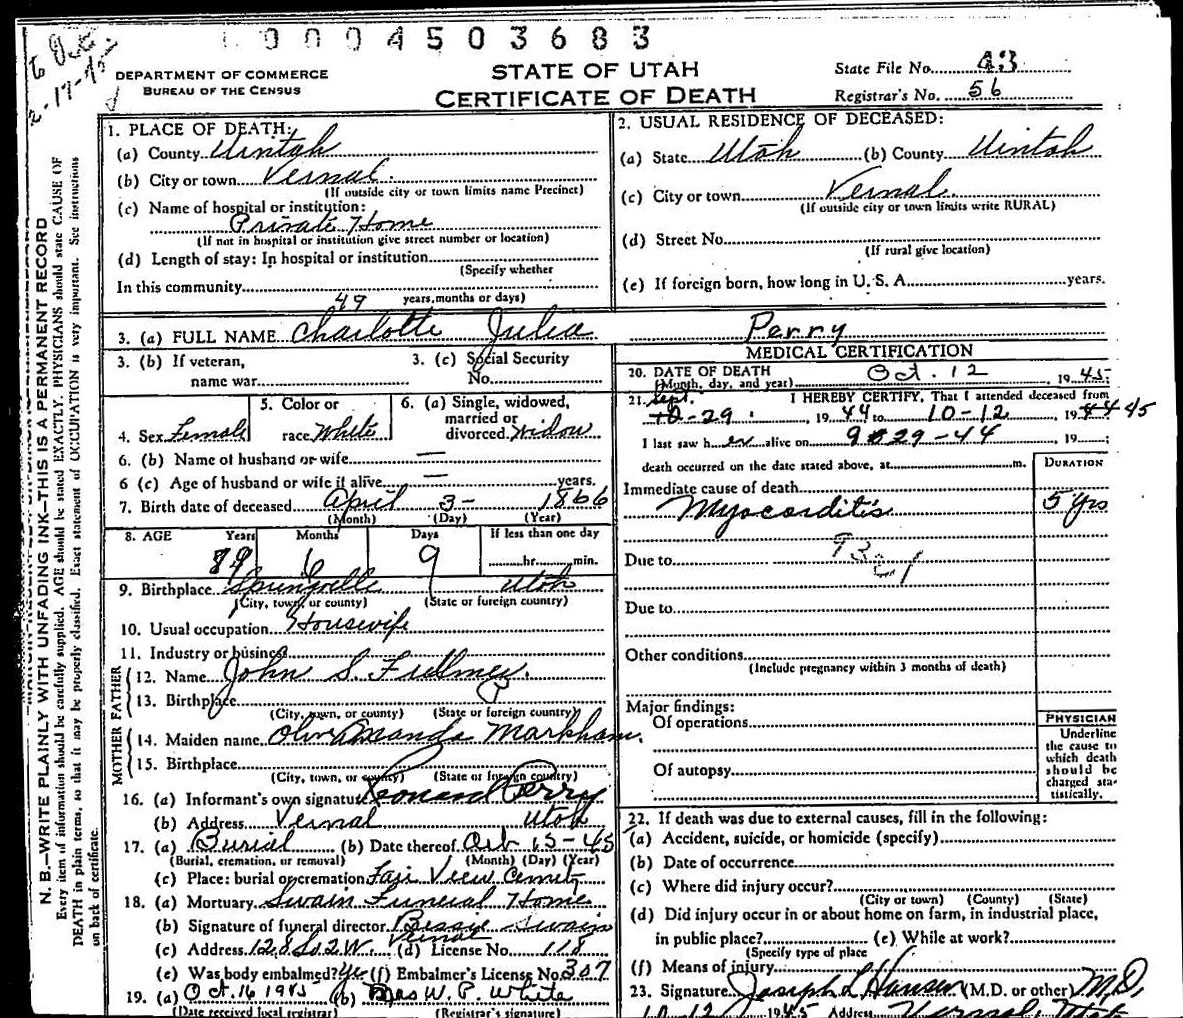 0004503683
to Dec.
2-17-45
DEPARTMENT OF COMMERCE
BUREAU OF THE CENSUS
STATE OF UTAH
CERTIFICATE OF DEATH
State File No. 43
Registrar's No. 56
N. B.—WRITE PLAINLY WITH UNFADING INK—THIS IS A PERMANENT RECORD
Every item of information should be carefully supplied. AGE should be stated EXACTLY. PHYSICIANS should state CAUSE OF
DEATH in plain terms, so that it may be properly classified. Exact statement of OCCUPATION is very important. See instructions
on back of certificate.
1. PLACE OF DEATH:
(a) County Uintah
(b) City or town Vernal
(If outside city or town limits name Precinct)
(c) Name of hospital or institution:
Private Home
(If not in hospital or institution give street number or location)
(d) Length of stay: In hospital or institution
(Specify whether
In this community 49
years, months or days)
2. USUAL RESIDENCE OF DECEASED:
(a) State Utah (b) County Uintah
(c) City or town Vernal
(If outside city or town limits write RURAL)
(d) Street No.
(If rural give location)
(e) If foreign born, how long in U. S. A. years.
3. (a) FULL NAME Charlotte Julia Perry
3. (b) If veteran,
name war
3. (c) Social Security
No.
4. Sex Female
5. Color or
race White
6. (a) Single, widowed,
married or
divorced. Widow
6. (b) Name of husband or wife —
6 (c) Age of husband or wife if alive — years.
7. Birth date of deceased April 3- 1866
(Month) (Day) (Year)
8. AGE Years Months Days If less than one day
79 6 9 hr. min.
9. Birthplace Springville Utah
(City, town, or county) (State or foreign country)
10. Usual occupation Housewife
11. Industry or business
FATHER
12. Name John S. Fullmer.
13. Birthplace
(City, town, or county) (State or foreign country)
MOTHER
14. Maiden name Olive Amanda Markham.
15. Birthplace
(City, town, or county) (State or foreign country)
16. (a) Informant's own signature Leonard Perry
(b) Address Vernal Utah
17. (a) Burial (b) Date thereof Oct 15-45
(Burial, cremation, or removal) (Month) (Day) (Year)
(c) Place: burial or cremation Fair View Cemet
18. (a) Mortuary Swain Funeral Home
(b) Signature of funeral director Bessie Swain
Vernal
(c) Address 128 So 2 W. (d) License No. 118
(e) Was body embalmed? Yes (f) Embalmer's License No. 307
19. (a) Oct. 16 1945 (b) Mrs W. P. White
(Date received local registrar) (Registrar's signature)
MEDICAL CERTIFICATION
20. DATE OF DEATH Oct. 12, 1945
(Month, day, and year)
21. I HEREBY CERTIFY, That I attended deceased from
Sept.
10-29, 1944 to 10-12, 1944 45
I last saw her alive on 9-29-44, 19 ;
death occurred on the date stated above, at m.
DURATION
Immediate cause of death
Myocarditis 5 yrs
Due to
Due to
Other conditions
(Include pregnancy within 3 months of death)
Major findings:
Of operations
Of autopsy
PHYSICIAN
Underline
the cause to
which death
should be
charged sta-
tistically.
22. If death was due to external causes, fill in the following:
(a) Accident, suicide, or homicide (specify)
(b) Date of occurrence
(c) Where did injury occur?
(City or town) (County) (State)
(d) Did injury occur in or about home on farm, in industrial place,
in public place? (e) While at work?
(Specify type of place
(f) Means of injury
23. Signature Joseph L Hansen (M.D. or other) M.D.
10-12 1945 Address Vernal, Utah